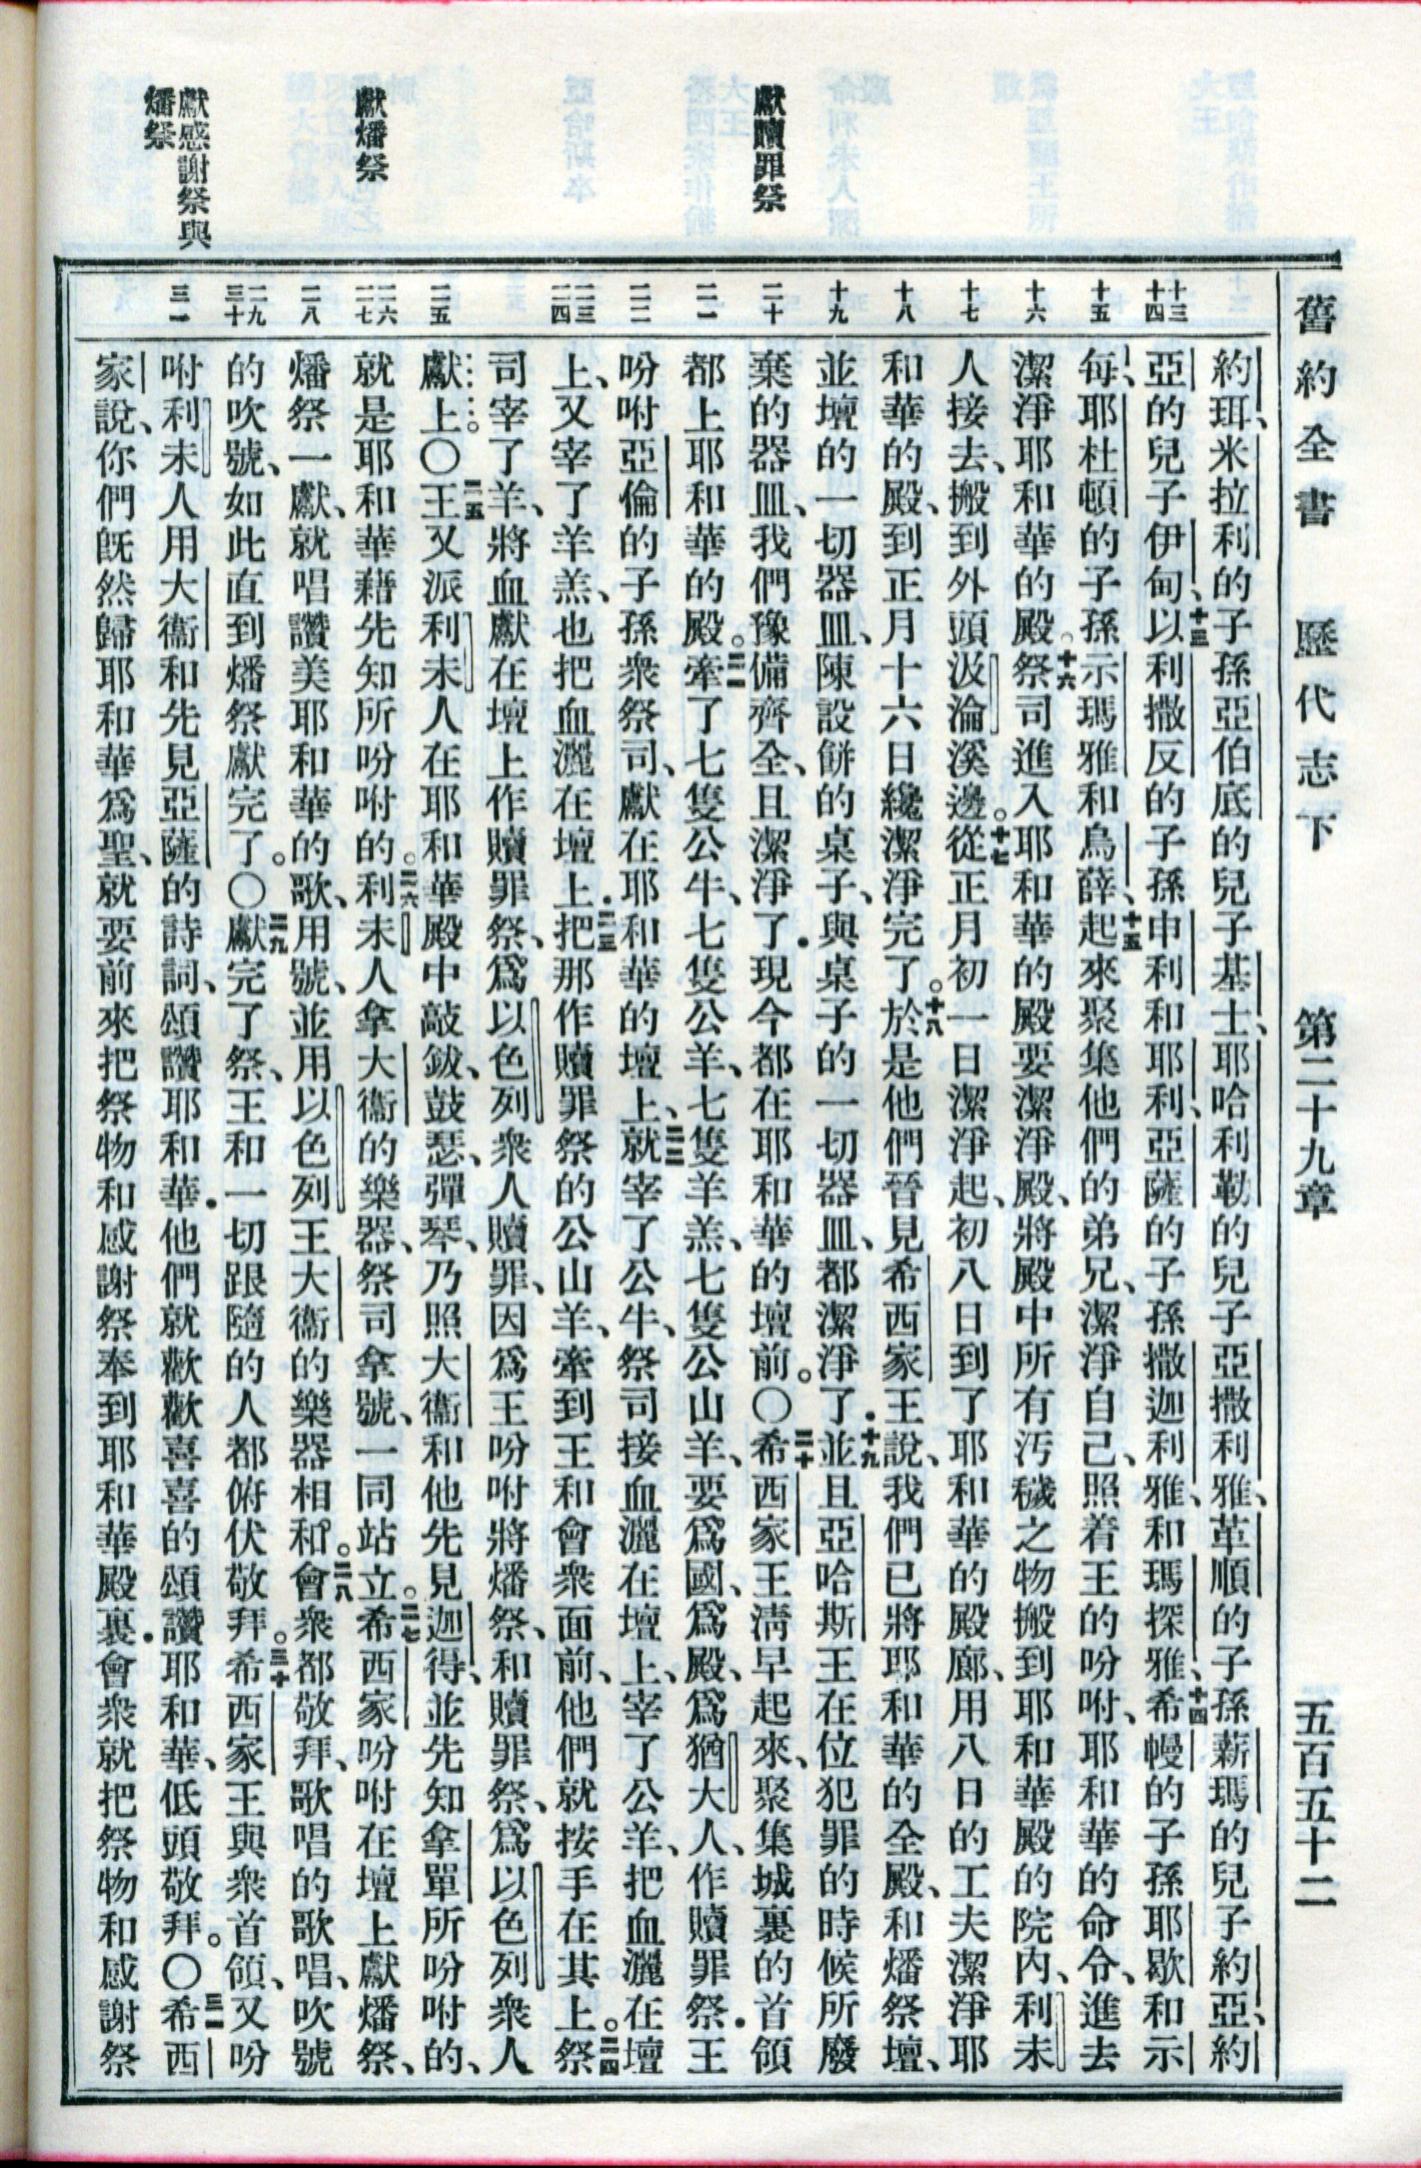 舊約全書 歷代志下 第二十九章 五百五十二
獻贖罪祭
獻燔祭
獻感謝祭與
燔祭
十三 十四 十五 十六 十七 十八 十九 二十 二一 二二 二三 二四 二五 二六 二七 二八 二九 三十 三一
約珥、米拉利的子孫亞伯底的兒子基士、耶哈利勒的兒子亞撒利雅、革順的子孫薪瑪的兒子約亞、約
亞的兒子伊甸、十三以利撒反的子孫申利和耶利、亞薩的子孫撒迦利雅、和瑪探雅、十四希幔的子孫耶歇和示
每、耶杜頓的子孫示瑪雅和烏薛、十五起來聚集他們的弟兄、潔淨自己、照着王的吩咐、耶和華的命令、進去
潔淨耶和華的殿。十六祭司進入耶和華的殿要潔淨殿、將殿中所有汚穢之物搬到耶和華殿的院內、利未
人接去、搬到外頭汲淪溪邊。十七從正月初一日潔淨起、初八日到了耶和華的殿廊、用八日的工夫潔淨耶
和華的殿、到正月十六日纔潔淨完了。十八於是他們晉見希西家王說、我們已將耶和華的全殿、和燔祭壇、
並壇的一切器皿、陳設餅的桌子、與桌子的一切器皿、都潔淨了．十九並且亞哈斯王在位犯罪的時候所廢
棄的器皿、我們豫備齊全、且潔淨了．現今都在耶和華的壇前。〇二十希西家王清早起來、聚集城裏的首領
都上耶和華的殿。二一牽了七隻公牛、七隻公羊、七隻羊羔、七隻公山羊、要爲國、爲殿、爲猶大人、作贖罪祭．王
吩咐亞倫的子孫衆祭司、獻在耶和華的壇上、二二就宰了公牛、祭司接血灑在壇上、宰了公羊、把血灑在壇
上、又宰了羊羔、也把血灑在壇上．二三把那作贖罪祭的公山羊、牽到王和會衆面前、他們就按手在其上。二四祭
司宰了羊、將血獻在壇上作贖罪祭、爲以色列衆人贖罪、因爲王吩咐將燔祭、和贖罪祭、爲以色列衆人
獻上。〇二五王又派利未人在耶和華殿中敲鈸、鼓瑟、彈琴、乃照大衞和他先見迦得、並先知拿單所吩咐的、
就是耶和華藉先知所吩咐的。二六利未人拿大衞的樂器、祭司拿號、一同站立。二七希西家吩咐在壇上獻燔祭、
燔祭一獻、就唱讚美耶和華的歌、用號、並用以色列王大衞的樂器相和。二八會衆都敬拜、歌唱的歌唱、吹號
的吹號、如此直到燔祭獻完了。〇二九獻完了祭、王和一切跟隨的人都俯伏敬拜。三十希西家王與衆首領、又吩
咐利未人用大衞和先見亞薩的詩詞、頌讚耶和華．他們就歡歡喜喜的頌讚耶和華、低頭敬拜。〇三一希西
家說、你們旣然歸耶和華爲聖、就要前來把祭物和感謝祭奉到耶和華殿裏．會衆就把祭物和感謝祭